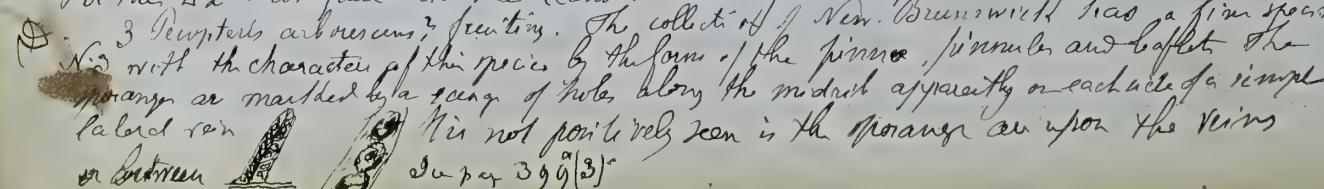 3 Pecopteris arborescens? fruiting. The collection of New. Brunswick has a fine speci
N. 3 with the characters of this species by the form of the pinnae, pinnules and leaflets The
sporanges are marked by a range of holes along the midrib apparently on each side of a simple
lateral vein It is not positively seen is the sporanges are upon the veins
or between See pag 399 (3)